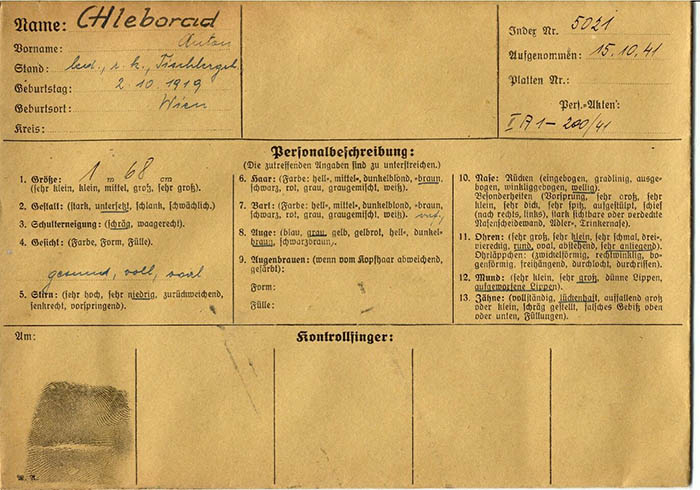 Name: CHleborad
Vorname: Anton
Stand: led., r. k., Tischlergeh.
Geburtstag: 2.10.1919
Geburtsort: Wien
Kreis:
Index Nr. 5021
Aufgenommen: 15.10.41
Platten Nr.:
Pers.-Akten:
I A 1 - 200/41
Personalbeschreibung:
(Die zutreffenden Angaben sind zu unterstreichen.)
1. Größe: 1 m 68 cm
(sehr klein, klein, mittel, groß, sehr groß).
2. Gestalt: (stark, untersetzt, schlank, schwächlich).
3. Schulterneigung: (schräg, waagerecht).
4. Gesicht: (Farbe, Form, Fülle).
gesund, voll, oval
5. Stirn: (sehr hoch, sehr niedrig, zurückweichend,
senkrecht, vorspringend).
6. Haar: (Farbe: hell-, mittel-, dunkelblond, braun,
schwarz, rot, grau, graugemischt, weiß).
7. Bart: (Farbe: hell-, mittel-, dunkelblond, braun,
schwarz, rot, grau, graugemischt, weiß).
8. Auge: (blau, grau, gelb, gelbrot, hell-, dunkel-
braun, schwarzbraun).
9. Augenbrauen: (wenn vom Kopfhaar abweichend,
gefärbt):
Form:
Fülle:
10. Nase: Rücken (eingebogen, gradlinig, ausge-
bogen, winkliggebogen, wellig).
Besonderheiten (Vorsprung, sehr groß, sehr
klein, sehr dick, sehr spitz, aufgestülpt, schief
(nach rechts, links), stark sichtbare oder verdeckte
Nasenscheidewand, Adler-, Trinkernase).
11. Ohren: (sehr groß, sehr klein, sehr schmal, drei-,
viereckig, rund, oval, abstehend, sehr anliegend).
Ohrläppchen: (zwickelförmig, rechtwinklig, bo-
genförmig, freihängend, durchlocht, durchrissen).
12. Mund: (sehr klein, sehr groß, dünne Lippen,
aufgeworfene Lippen).
13. Zähne: (vollständig, lückenhaft, auffallend groß
oder klein, schräg gestellt, falsches Gebiß oben
oder unten, Füllungen).
Am:
Kontrollfinger: